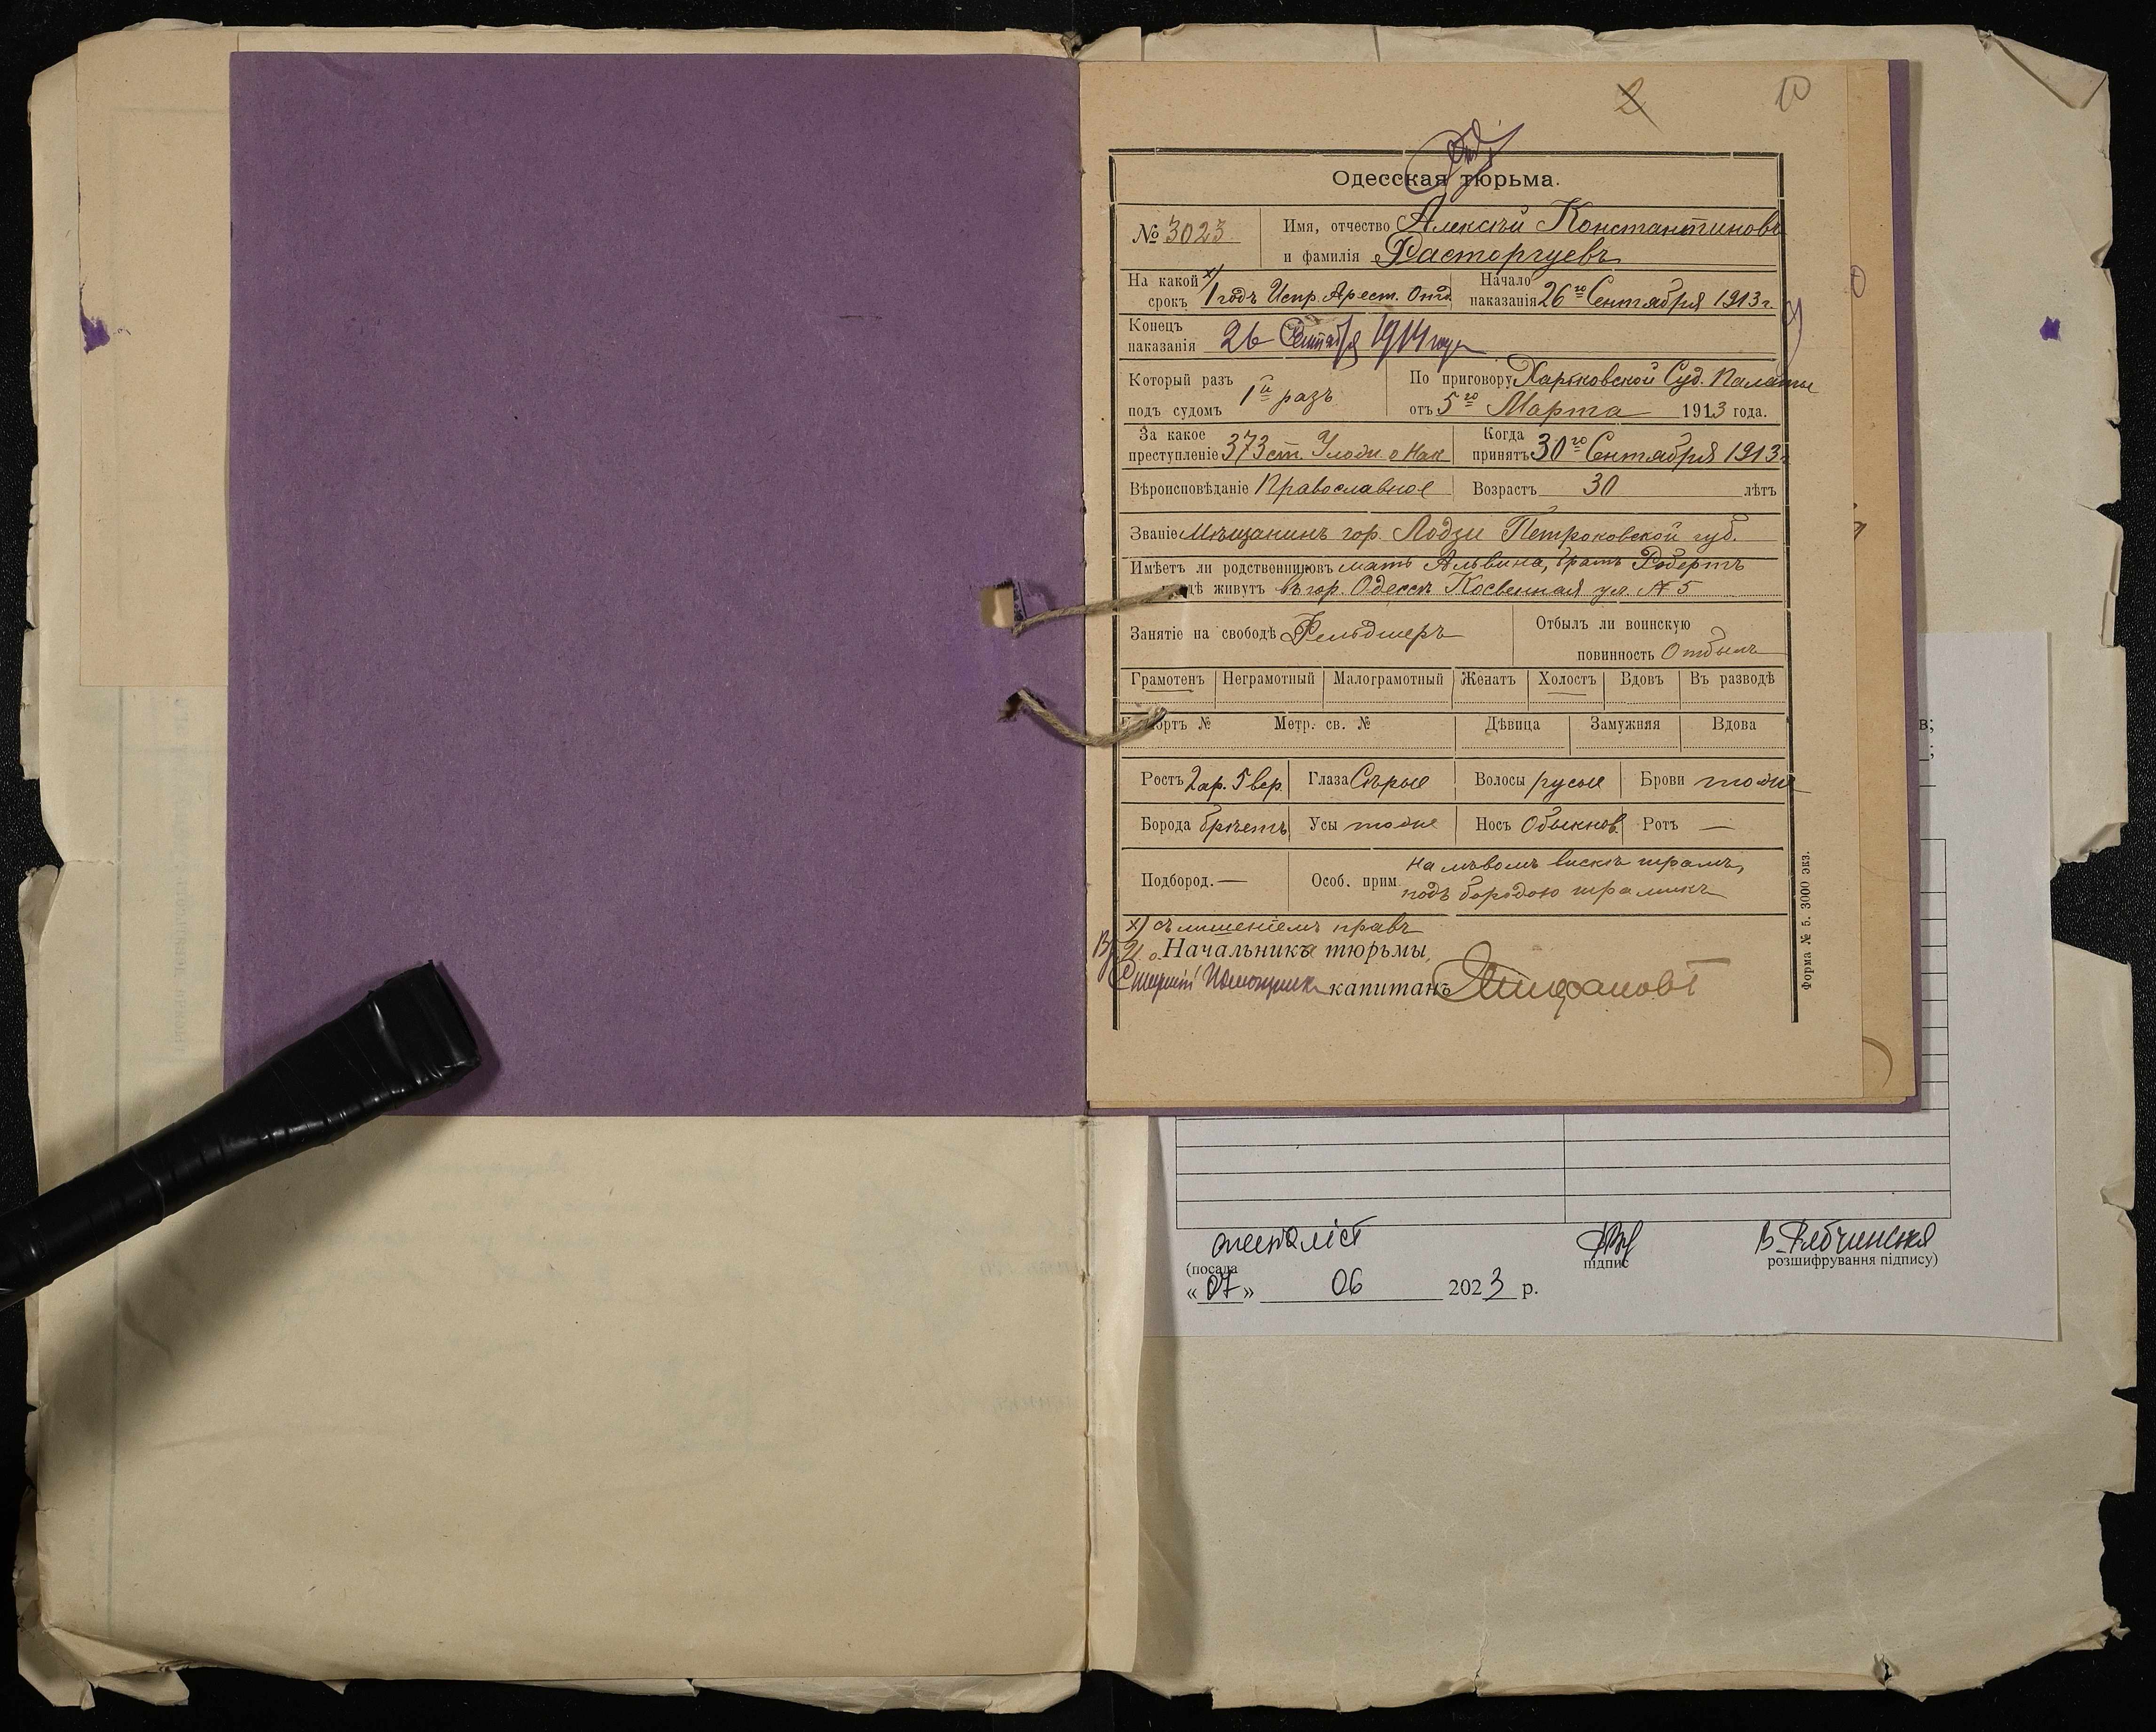 2
10
Одесская тюрьма.
№ 3023
Имя, отчество Алексѣй Константиновъ
и фамилія Расторгуевъ
На какой срокъ х) 1 годъ Испр. Арест. Отд.
Начало наказанія 26го Сентября 1913 г.
Конецъ наказанія 26 Сентября 1914 года
Который разъ подъ судомъ 1й разъ
По приговору Харьковской Суд. Палаты
отъ 5го Марта 1913 года.
За какое преступленіе 373 ст. Улож. о Нак
Когда принятъ 30го Сентября 1913 г
Вѣроисповѣданіе Православное
Возрастъ 30 лѣтъ
Званіе Мѣщанинъ гор. Лодзи Петроковской губ.
Имѣетъ ли родственниковъ мать Альвина, братъ Робертъ
гдѣ живутъ въ гор. Одессѣ Косвенная ул. № 5
Занятіе на свободѣ Фельдшеръ
Отбылъ ли воинскую повинность Отбылъ
Грамотенъ Неграмотный Малограмотный Женатъ Холостъ Вдовъ Въ разводѣ
№ Метр. св. № Дѣвица Замужняя Вдова
Ростъ 2 ар. 5 вер. Глаза Сѣрые Волосы русые Брови тоже
Борода брѣетъ Усы тоже Носъ Обыкнов. Ротъ —
Подбород. — Особ. прим. на лѣвомъ вискѣ шрамъ,
подъ бородою шрамикъ
х) съ лишеніемъ правъ
Вр. И. о. Начальника тюрьмы,
Старшій Помощникъ капитанъ
Форма № 5. 3000 экз.
в;
;
спеціаліст
В. Рябчинская
(посада
підпис
розшифрування підпису)
«07» 06 2023 р.